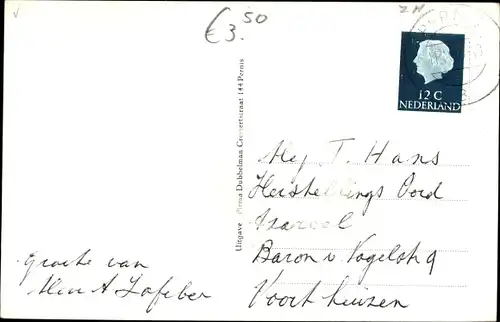 €3.50
12 C
NEDERLAND
Uitgave Firma Dubbelman Crezeertstraat 144 Pernis
Mej T. Hans
Herstellings Oord
Baron v Nagelstr 9
Voorthuizen
Groete van
Mevr A Lofeber